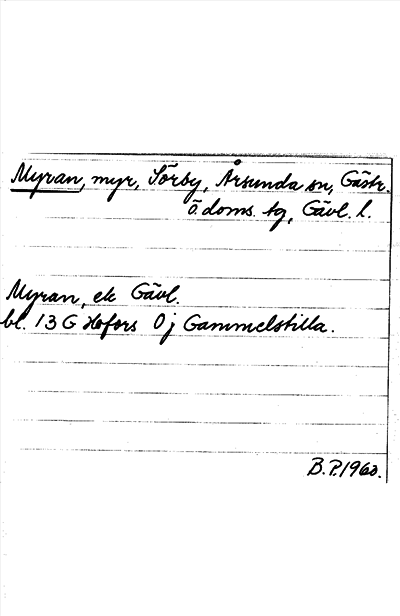 Myran, myr, Sörby, Årsunda sn, Gästr.
ö doms. tg, Gävl. l.
Myran, ek Gävl.
bl. 13 G Hofors 0j Gammelstilla.
B.P. 1960.